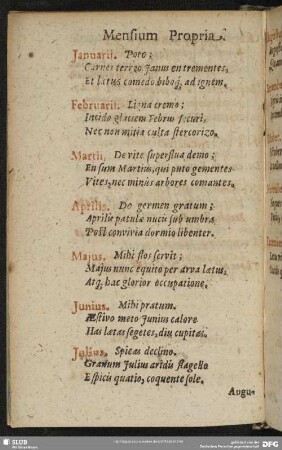 Mensium Propria.
Januarii. Poto;
Carnes terrco Janus en trementes,
Et latus comedo biboq; ad ignem.
Februarii. Ligna cremo;
Incido glaciem Febru securi,
Nec non mitia culta stercorizo.
Martii. De vite superflua demo;
En sum Martius, qui puto gementes
Vites, nec minus arbores comantes.
Aprilis. Do germen gratum;
Aprilis patulæ nucis sub umbra
Post convivia dormio libenter.
Majus. Mihi flos servit;
Majus nunc equito per arva latus,
Atq; hac glorior occupatione.
Junius. Mihi pratum.
Æstivo meto Junius calore
Has lætas segetes, diu cupitas.
Julius. Spicas declino.
Granum Julius aridis flagello
Espicis quatio, coquente sole.
Augu-
SLUB
DFG